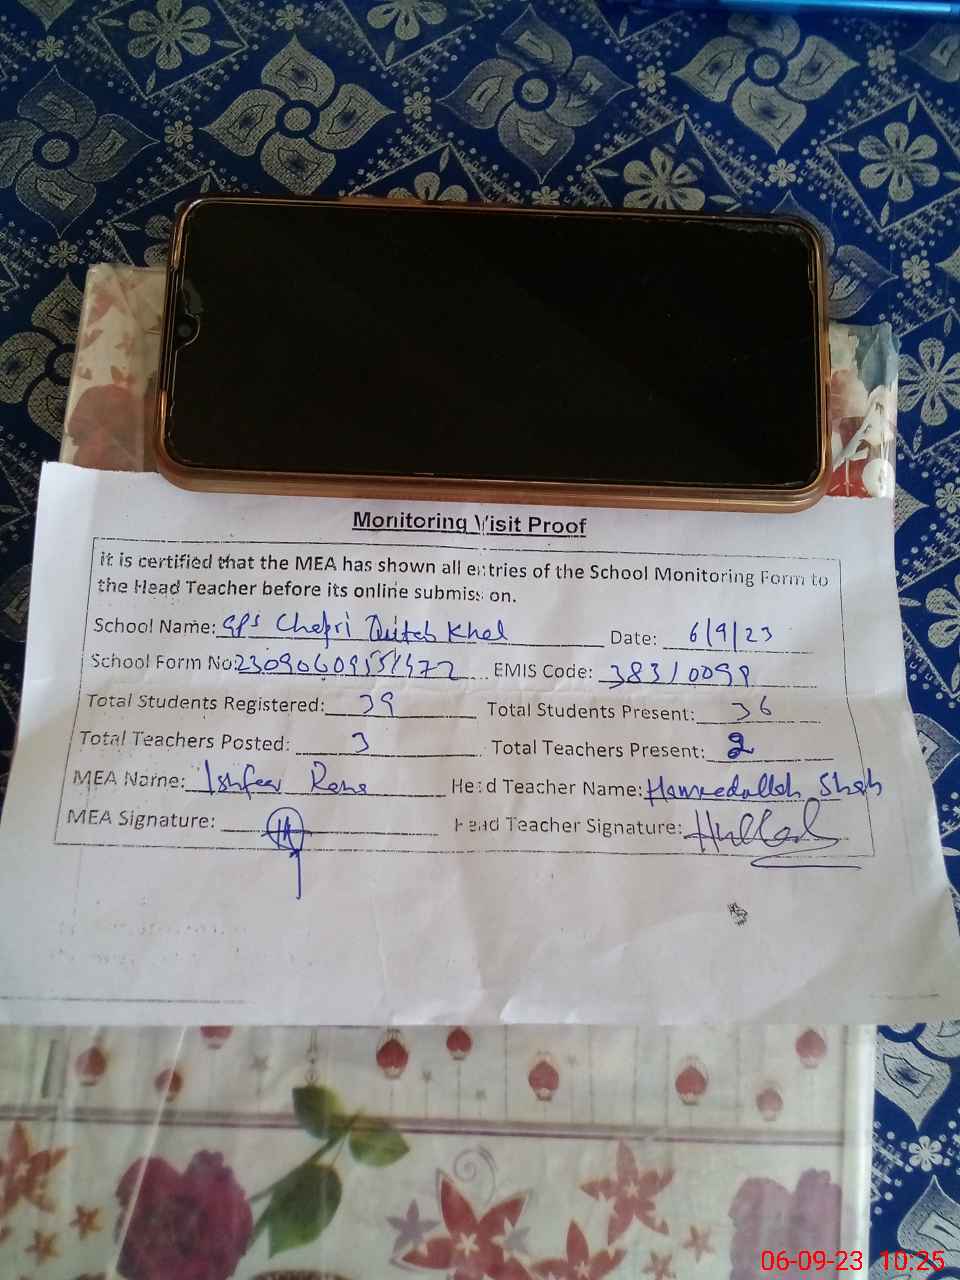 Monitoring Visit Proof
It is certified that the MEA has shown all entries of the School Monitoring Form to
the Head Teacher before its online submission.
School Name: GPS Chapri Qutab Khel Date: 6/9/23
School Form No: EMIS Code: 38310099
Total Students Registered: 39 Total Students Present: 36
Total Teachers Posted: 3 Total Teachers Present: 2
MEA Name: Head Teacher Name: Hameedullah Shah
MEA Signature: Head Teacher Signature:
06-09-23 10:25